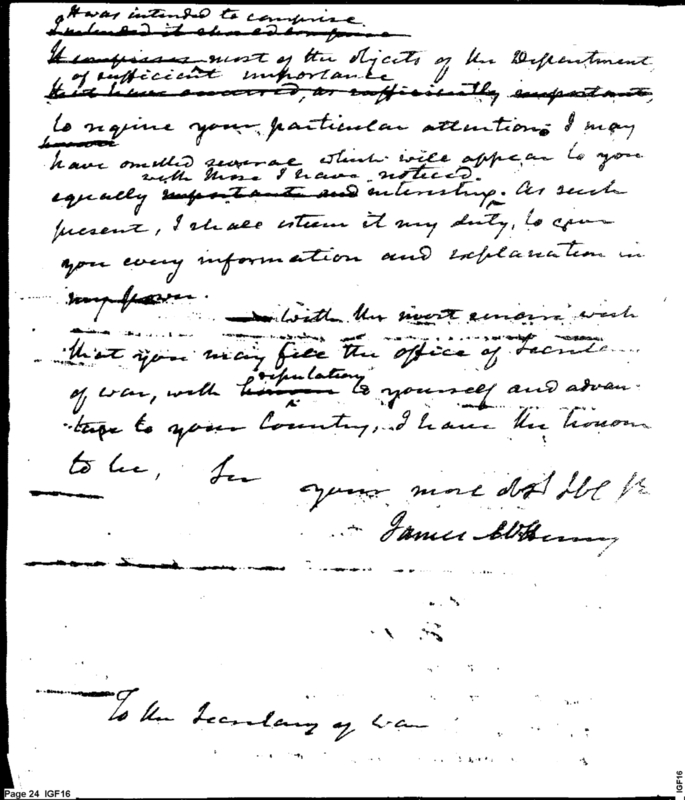 It was intended to comprise
I intended it should comprise
It comprises most of the objects of the Department
of sufficient importance
that have occurred, as sufficiently important,
to require your particular attention; I may
have omitted several which will appear to you
with those I have noticed.
equally important and interesting. As such
present, I shall esteem it my duty, to give
you every information and explanation in
my power.
With the most sincere wish
that you may fill the office of Secreta
reputation
of war, with honour to yourself and advan-
tage to your Country, I have the honour
to be, Sir
your most obt hble
James McHenry
To the Secretary of War
Page 24 IGF16
IGF16